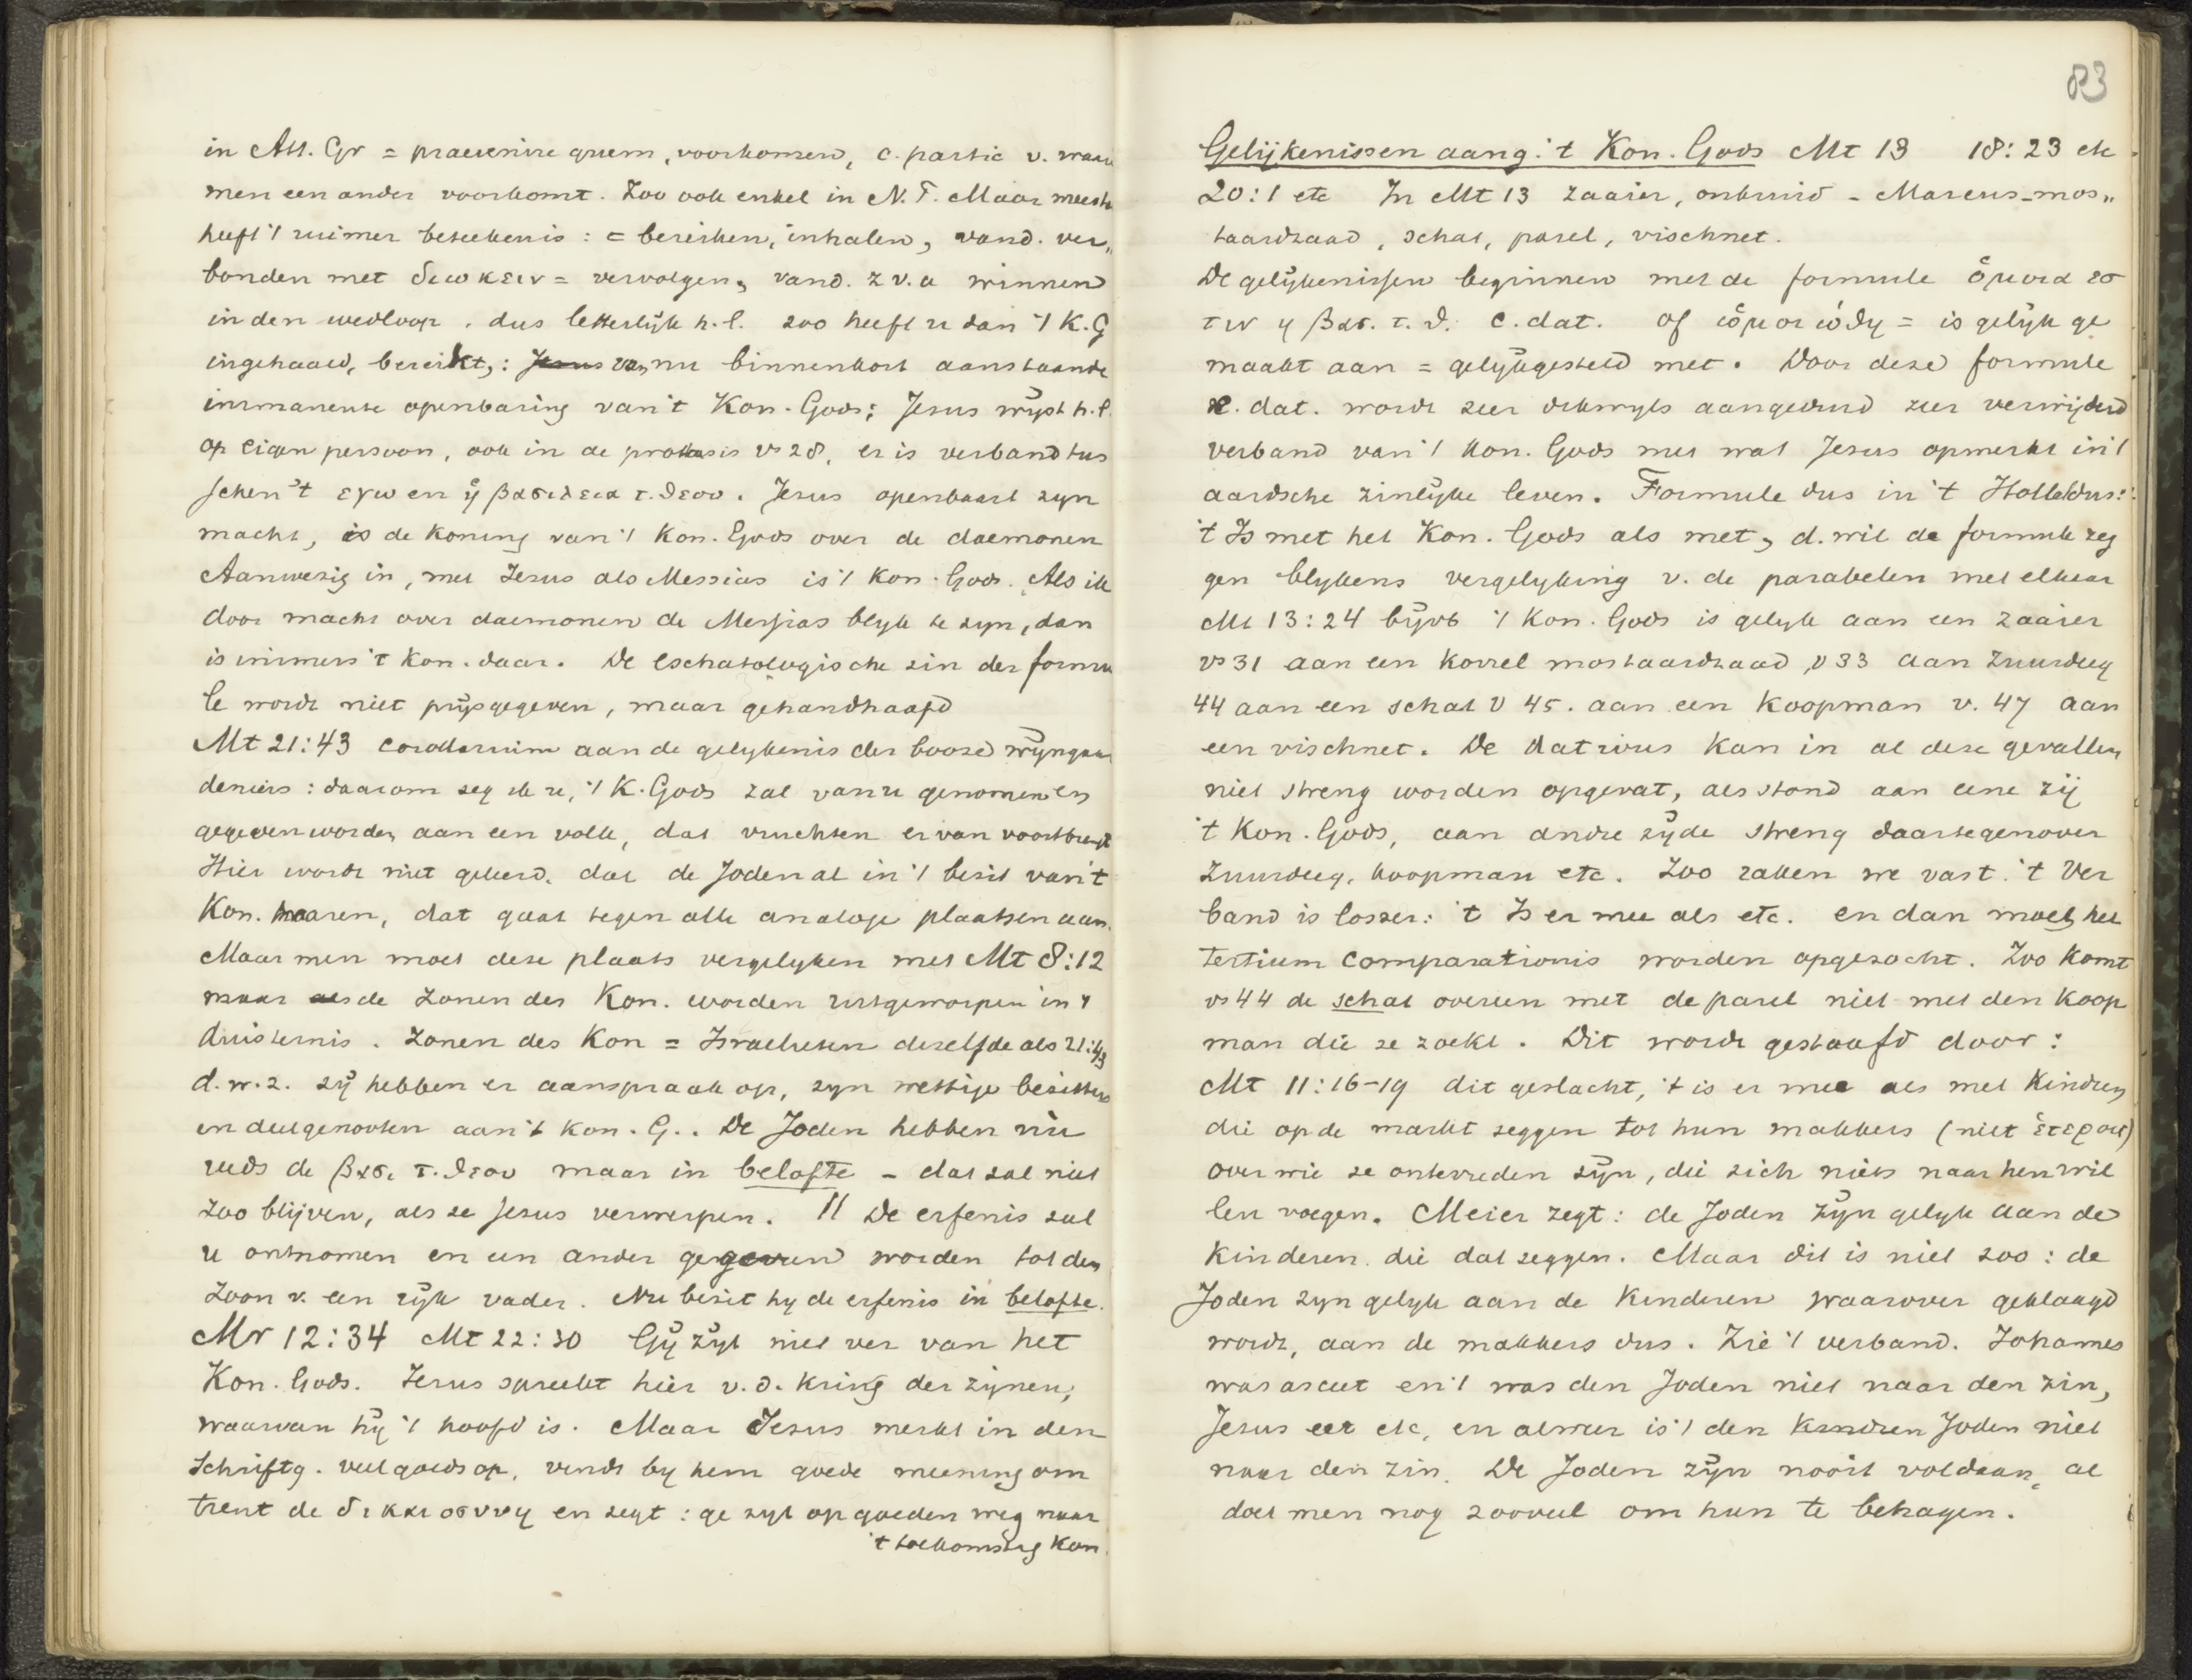 in Att. Gr = praevenire quem, voorkomen, c. partic v. waarin
men een ander voorkomt. Zoo ook enkel in N.T. Maar meestal
heeft 't ruimer beteekenis: = bereiken, inhalen, vand. ver„
bonden met διωκειν = vervolgen, vand. z v. a winnen
in den wedloop. dus letterlijk h.l. zoo heeft u dan 't K.G
ingehaald, bereikt,: Jesus van nu binnenkort aanstaande
immanente openbaring van 't Kon. Gods; Jesus wijst h.l.
op eigen persoon, ook in de protasis vs 28, er is verband tus
schen 't εγω en ἡ βασιλεια τ. θεου. Jesus openbaart zyn
macht, is de koning van 't Kon. Gods over de daemonen
Aanwezig in, met Jesus als Messias is 't Kon. Gods. Als ik
door macht over daemonen de Messias blyk te zyn, dan
is immers 't Kon. daar. De eschatologische zin der formu
le wordt niet prijsgegeven, maar gehandhaafd
Mt 21:43 corollarium aan de gelykenis der booze wijngaar
deniers: daarom zeg ik u, 't K. Gods zal van u genomen en
gegeven worden aan een volk, dat vruchten ervan voortbrengt
Hier wordt niet geleerd, dat de Joden al in 't bezit van 't
Kon. waren, dat gaat tegen alle analoge plaatsen aan.
Maar men moet deze plaats vergelyken met Mt 8:12
maar als de zonen des Kon. worden uitgeworpen in 't
duisternis. Zonen des Kon = Israelieten dezelfde als 21:43
d.w.z. zij hebben er aanspraak op, zyn wettige bezitters
en deelgenooten aan 't Kon. G.. De Joden hebben nu
reeds de βασι τ. θεου maar in belofte – dat zal niet
zoo blijven, als ze Jesus verwerpen. || De erfenis zal
u ontnomen en een ander gegeven worden tot den
zoon v. een rijk vader. Nu bezit hy de erfenis in belofte.
Mr 12:34 Mt 22:30 Gij zijt niet ver van het
Kon. Gods. Jesus spreekt hier v. d. kring der zijnen,
waarvan hij 't hoofd is. Maar Jesus merkt in den
Schriftg. veel goeds op, vindt by hem goede meening om
trent de δικαιοσυνη en zegt: ge zyt op goeden weg naar
't toekomstig Kon.
83
Gelijkenissen aang. 't Kon. Gods Mt 13 18:23 etc.
20:1 etc In Mt 13 zaaier, onkruid – Marcus – mos„
taardzaad, schat, parel, vischnet.
De gelijkenissen beginnen met de formule ὁμοια εσ
τιν ἡ βασ. τ. θ. c. dat. of ὡμοιώθη = is gelijk ge
maakt aan = gelijkgesteld met. Door deze formule
c. dat. wordt zeer dikwyls aangeduid zeer verwijderd
verband van 't Kon. Gods met wat Jesus opmerkt in 't
aardsche zinlijke leven. Formule dus in 't Holl. dus:
't Is met het Kon. Gods als met, d. wil de formule zeg
gen blykens vergelyking v. de parabelen met elkaar
Mt 13:24 bijvb 't Kon. Gods is gelyk aan een zaaier
vs 31 aan een korrel mostaardzaad, v 33 aan zuurdeeg
44 aan een schat v 45. aan een koopman v. 47 aan
een vischnet. De dativus kan in al deze gevallen
niet streng worden opgevat, als stond aan eene zij
't Kon. Gods, aan andre zijde streng daartegenover
zuurdeeg, koopman etc. Zoo raken we vast. 't Ver
band is losser: 't Is er mee als etc. en dan moet het
tertium comparationis worden opgezocht. Zoo komt
vs 44 de schat overeen met de parel niet met den koop
man die ze zoekt. Dit wordt gestaafd door:
Mt 11:16-19 dit geslacht, 't is er mee als met kindren
die op de markt zeggen tot hun makkers (niet ἑτεροις)
over wie ze ontevreden zijn, die zich niets naar hen wil
len voegen. Meier zegt: de Joden zijn gelyk aan de
kinderen die dat zeggen. Maar dit is niet zoo: de
Joden zyn gelyk aan de kinderen waarover geklaagd
wordt, aan de makkers dus. Zie 't verband. Johannes
was asceet en 't was den Joden niet naar den zin,
Jesus eet etc, en alweer is 't den kindren Joden niet
naar den zin. De Joden zijn nooit voldaan, al
doet men nog zooveel om hun te behagen.